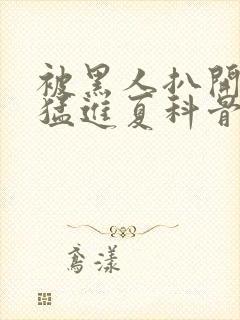 被黑人扒開
猛進夏科醫
鸢漾